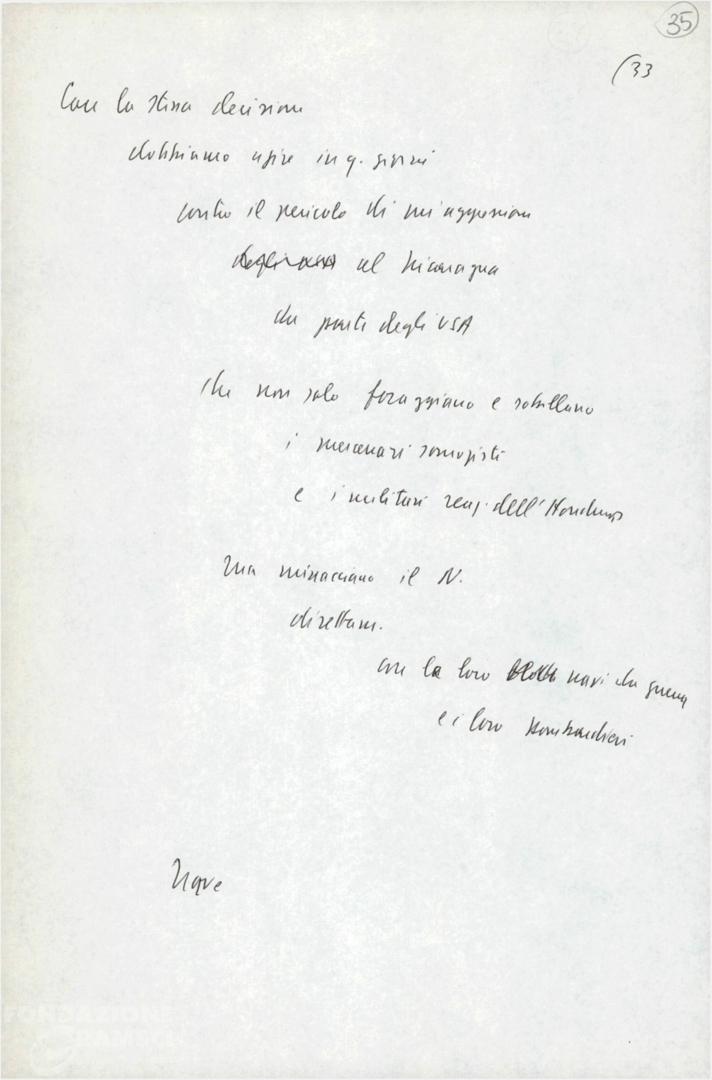 35
(33
Con la stessa decisione
dobbiamo agire in q. giorni
contro il pericolo di un'aggressione
degli USA al Nicaragua
da parte degli USA
che non solo foraggiano e sobillano
i mercenari somozisti
e i militari reaz. dell'Honduras
ma minacciano il N.
direttam.
con le loro navi da guerra
e i loro bombardieri
FONDAZIONE
GRAMSCI